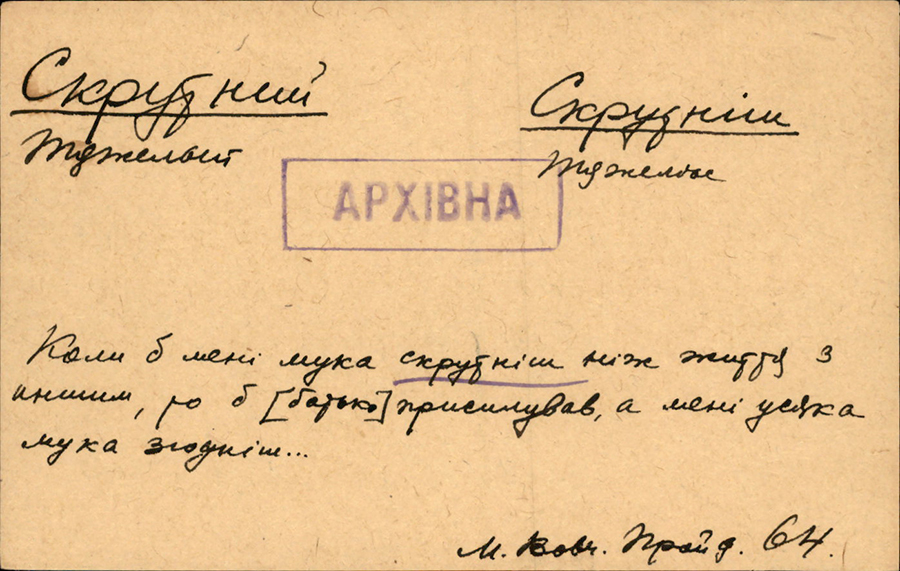 Скрутний
Скрутніш
Тяжелый
Тяжелѣе
АРХІВНА
Коли б мені мука скрутніш ніж життя з
иншим, то б [батько] присилував, а мені усяка
мука згодніш...
М. Вовч. Пройд. 64.